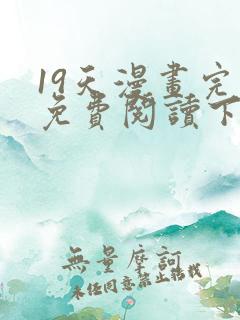 19天漫畫完
免費閱讀下
無量摩訶
未經同意禁止轉載